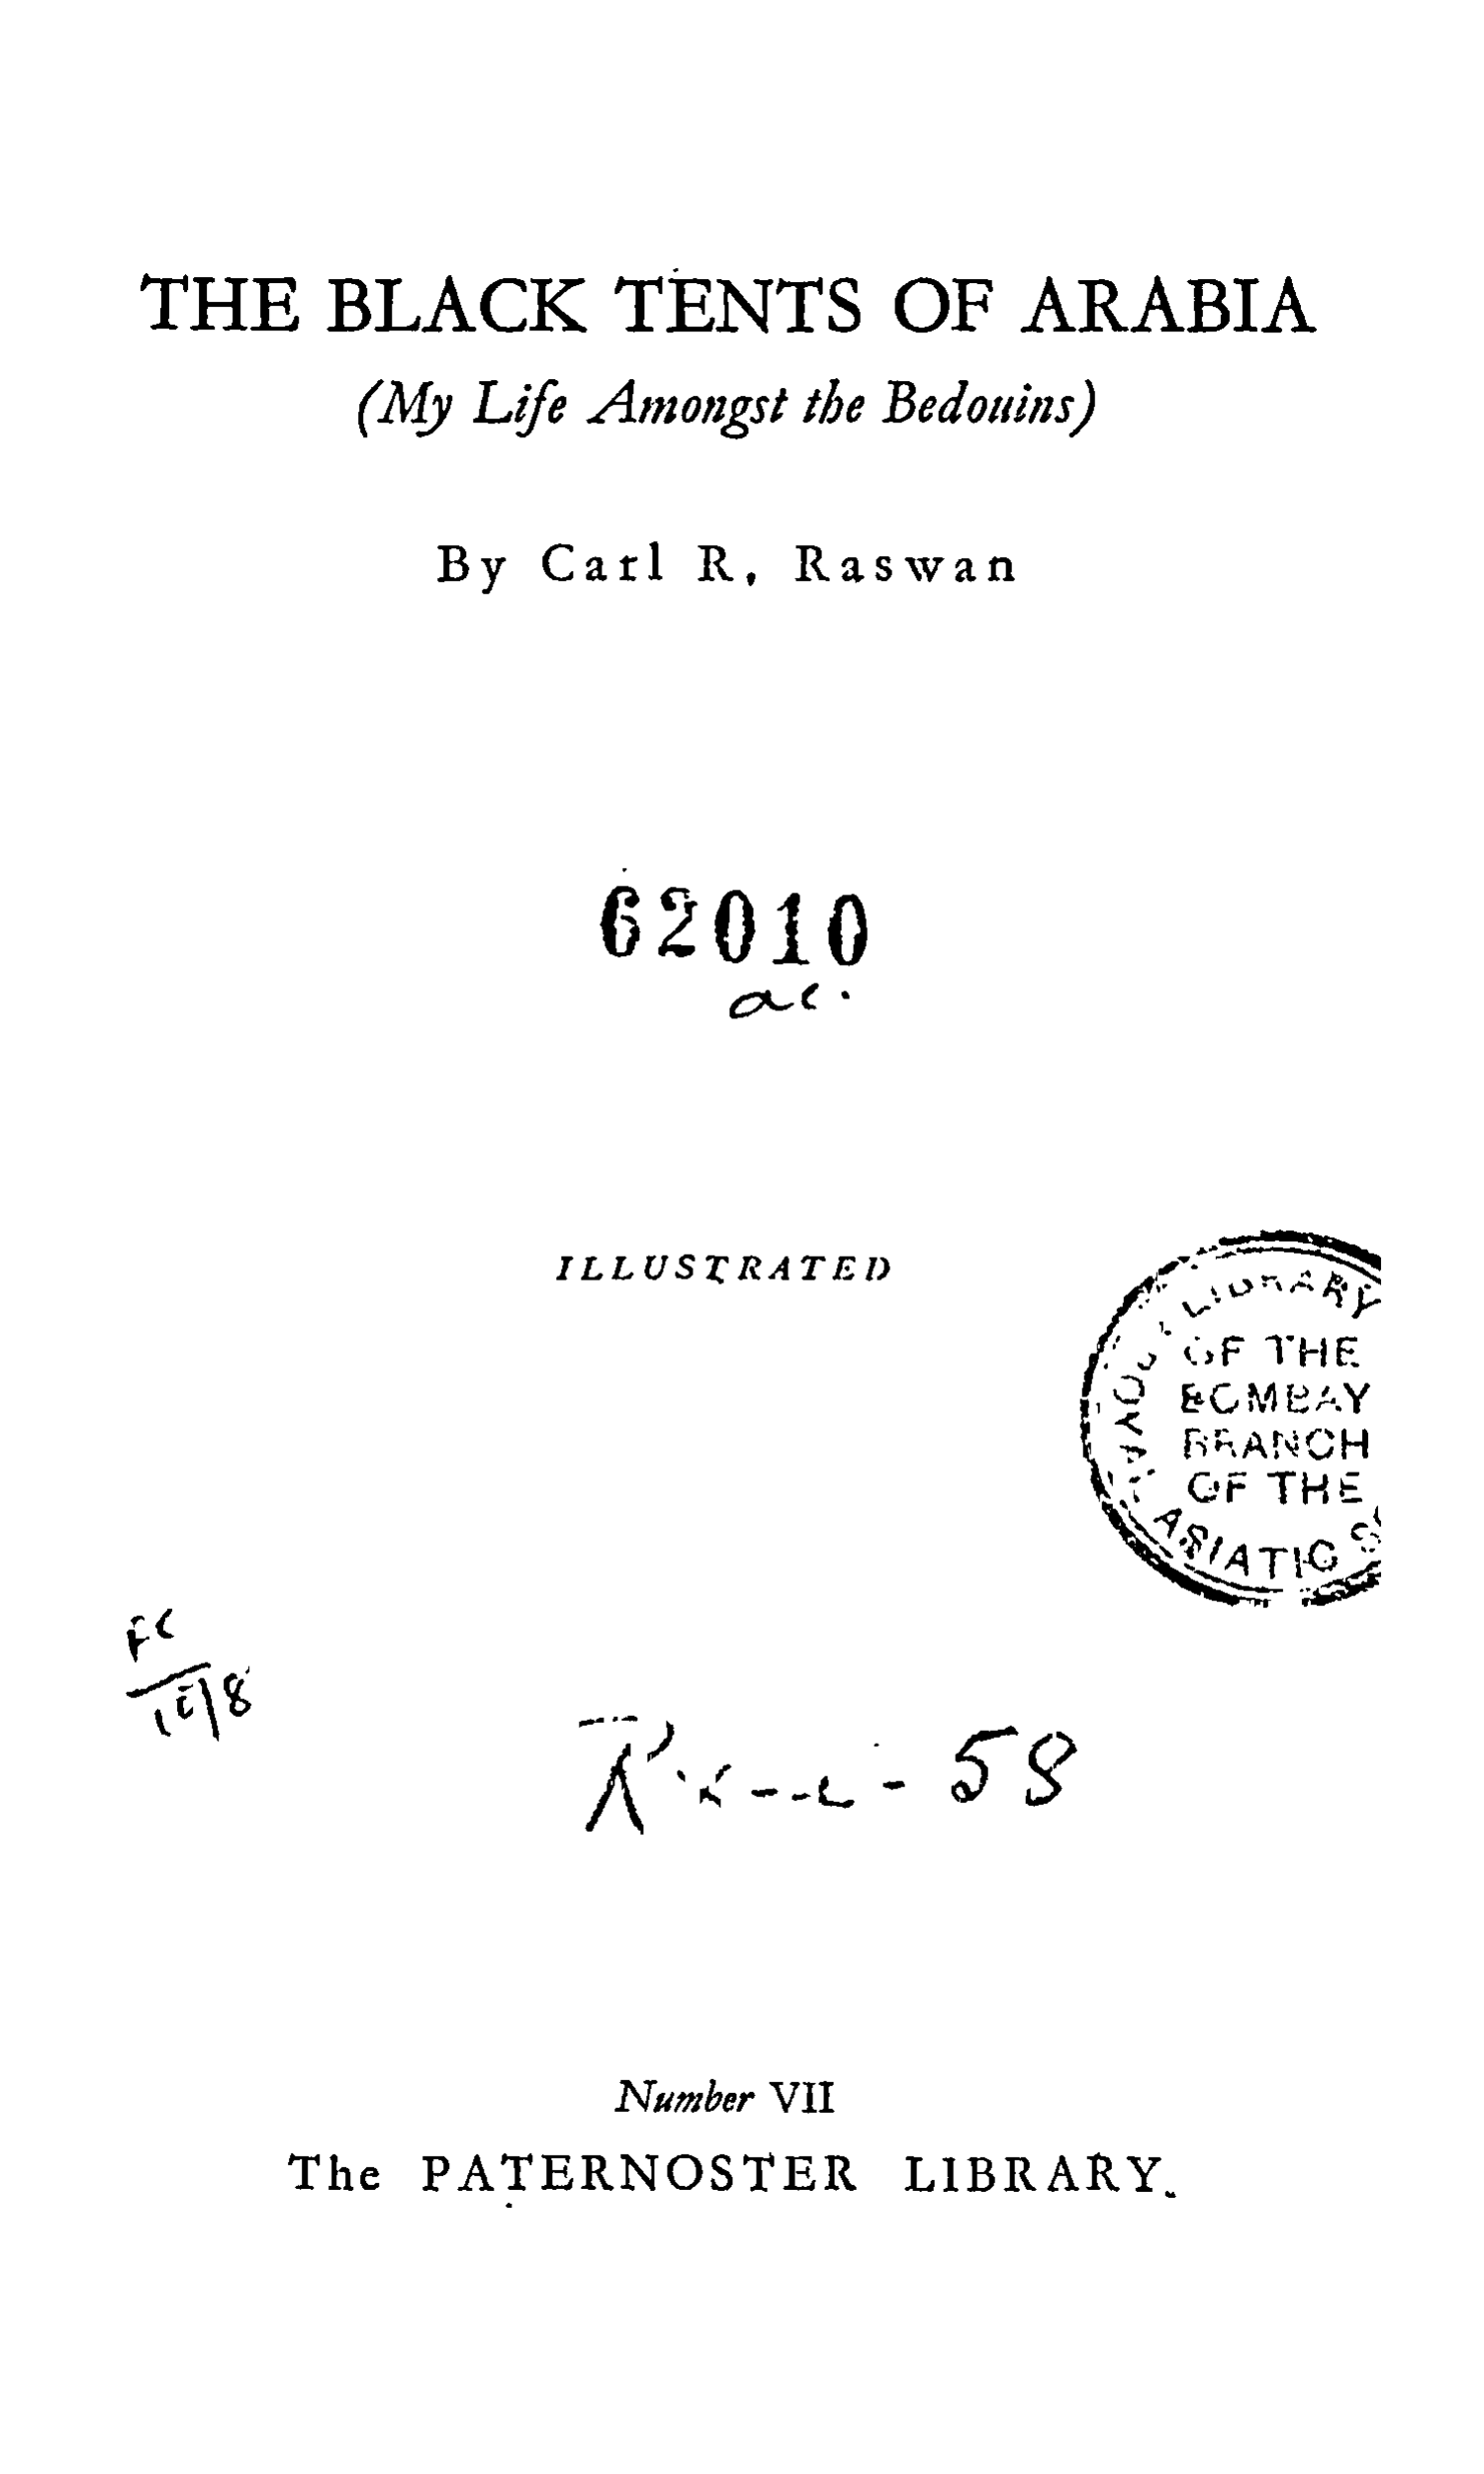 THE BLACK TENTS OF ARABIA
(My Life Amongst the Bedouins)
By Carl R. Raswan
62010
ac.
ILLUSTRATED
LIBRARY
OF THE
BOMBAY
BRANCH
OF THE
ROYAL ASIATIC
58
Number VII
The PATERNOSTER LIBRARY